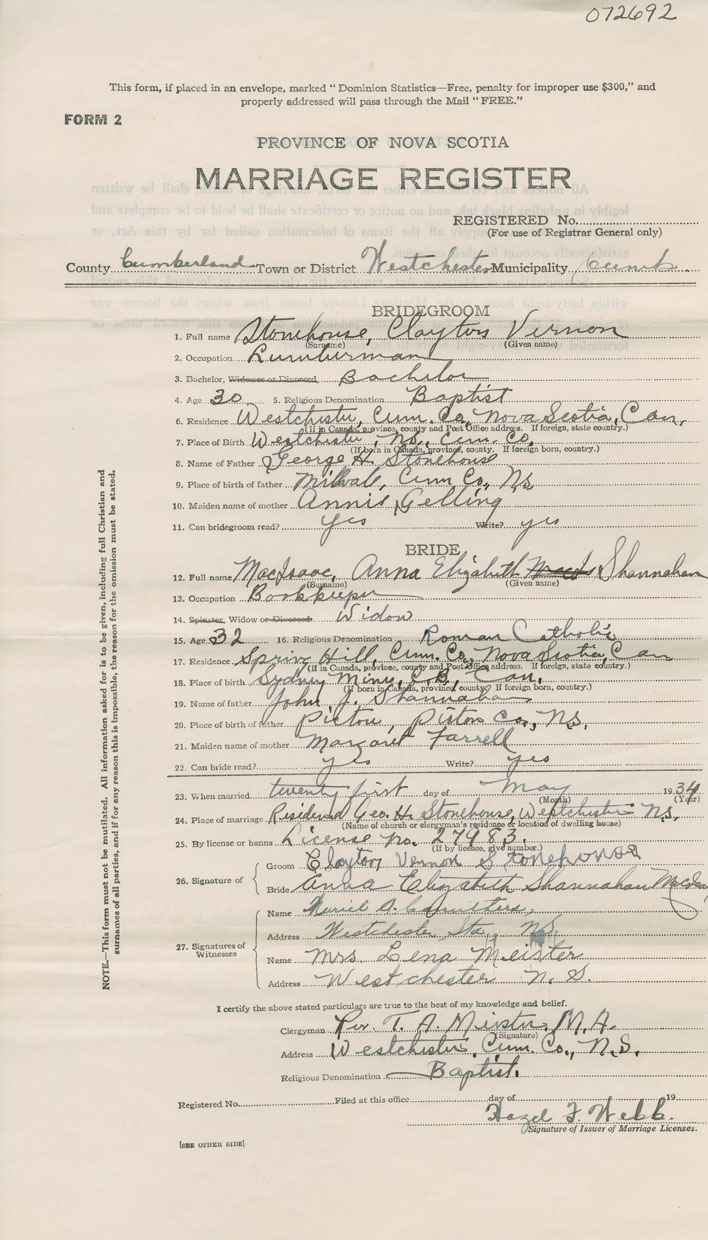 072692
This form, if placed in an envelope, marked "Dominion Statistics—Free, penalty for improper use $300," and
properly addressed will pass through the Mail "FREE."
FORM 2
PROVINCE OF NOVA SCOTIA
MARRIAGE REGISTER
REGISTERED No.
(For use of Registrar General only)
County Cumberland Town or District Westchester Municipality Cumb.
BRIDEGROOM
1. Full name Stonehouse, Clayton Vernon
(Surname) (Given name)
2. Occupation Lumberman
3. Bachelor, Widower or Divorced Bachelor
4. Age 30 5. Religious Denomination Baptist
6. Residence Westchester, Cum. Co., Nova Scotia, Can.
(If in Canada, province, county and Post Office address. If foreign, state country.)
7. Place of Birth Westchester, N.S., Cum. Co.
(If born in Canada, province, county. If foreign born, country.)
8. Name of Father George H. Stonehouse
9. Place of birth of father Cum Co., N.S
10. Maiden name of mother Annis Gelling
11. Can bridegroom read? yes Write? yes
BRIDE
12. Full name MacIsaac, Anna Elizabeth Shannahan
(Surname) (Given name)
13. Occupation Bookkeeper
14. Spinster, Widow or Divorced Widow
15. Age 32 16. Religious Denomination Roman Catholic
17. Residence Spring Hill, Cum. Co., Nova Scotia, Can
(If in Canada, province, county and Post Office address. If foreign, state country.)
18. Place of birth Sydney Mines, C.B., Can.
(If born in Canada, province, county. If foreign born, country.)
19. Name of father John J. Shannahan
20. Place of birth of father Pictou, Pictou Co., N.S.
21. Maiden name of mother Margaret Farrell
22. Can bride read? yes Write? yes
23. When married twenty first day of May 1934
(Month) (Year)
24. Place of marriage Residence Geo. H. Stonehouse, Westchester N.S.
(Name of church or clergyman's residence or location of dwelling house)
25. By license or banns License no. 27983.
(If by licence, give number.)
26. Signature of
Groom Clayton Vernon Stonehouse
Bride Anna Elizabeth Shannahan
27. Signatures of Witnesses
Name
Address Westchester Sta., N.S.
Name Mrs. Lena Meister
Address Westchester N.S.
I certify the above stated particulars are true to the best of my knowledge and belief.
Clergyman Rev. T. A. Meister, M.A.
(Signature)
Address Westchester, Cum. Co., N.S.
Religious Denomination Baptist.
Registered No. Filed at this office day of 19
Hazel F. Webb.
Signature of Issuer of Marriage Licenses.
[SEE OTHER SIDE]
NOTE.—This form must not be mutilated. All information asked for is to be given, including full Christian and
surnames of all parties, and if for any reason this is impossible, the reason for the omission must be stated.